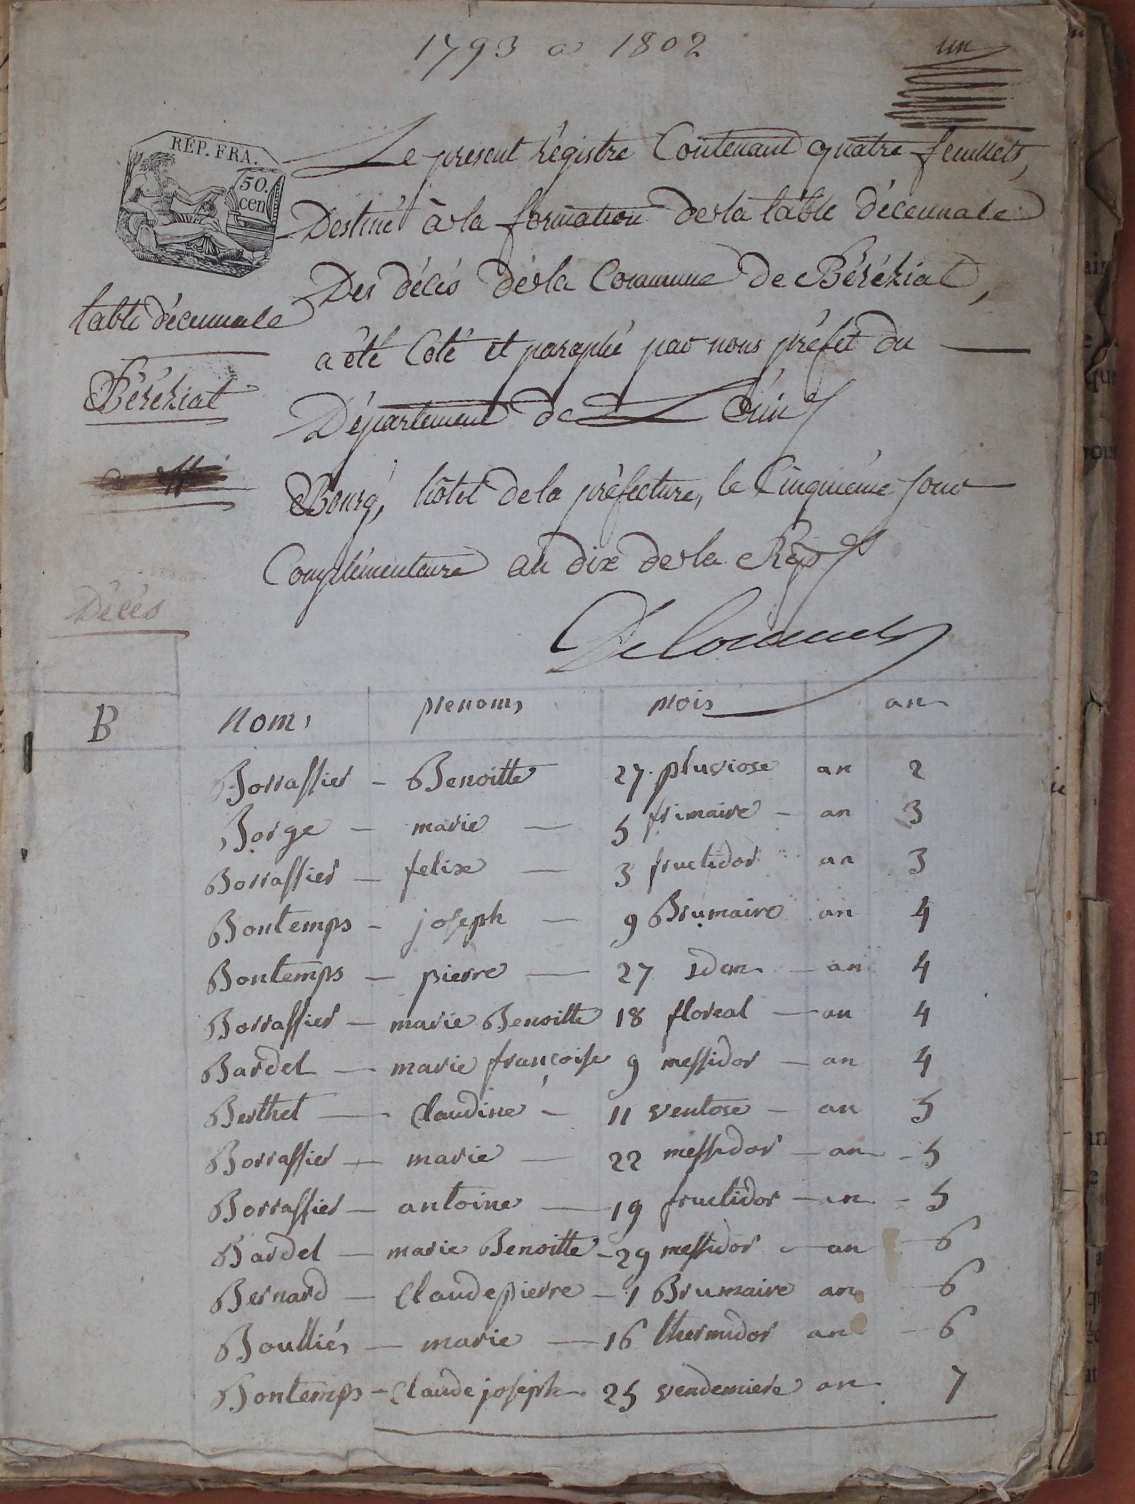 1793 a 1802
un
REP. FRA.
50.
cen
Le present Régistre Contenant quatre feuillets,
Destiné à la formation de la table décennale
Des décès de la Commune de Béréziat,
table décennale
a été Coté et paraphé par nous préfet du
Béréziat
Département de L'ain
Bourg, hôtel de la préfecture, le Cinquième jour
Complémentaire an dix de la Rep
Décès
B
noms prenoms mois an
Borrassier - Benoitte 27 pluviose an 2
Borge - marie - 5 frimaire - an 3
Borrassier - felix - 3 fructidor an 3
Bontemps - joseph - 9 Brumaire an 4
Bontemps - pierre - 27 idem - an 4
Borrassier - marie Benoitte 18 floreal - an 4
Bardel - marie françoise 9 messidor - an 4
Berthet - Claudine - 11 ventose - an 5
Borrassier - marie - 22 messidor - an - 5
Borrassier - antoine - 19 fructidor - an - 5
Bardel - marie Benoitte - 29 messidor - an - 6
Bernard - Claude pierre - 1 Brumaire an - 6
Boulliés - marie - 16 thermidor an - 6
Bontemps - Claude joseph - 25 vendemiere an 7